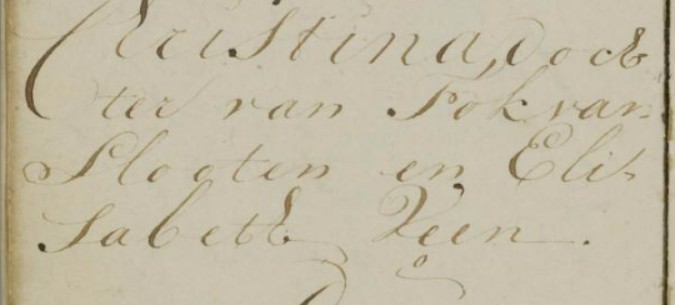 Christina, doch
ter van Fok van
Slooten en Eli-
sabeth Veen.